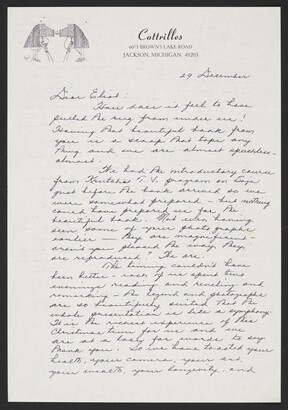 Cottrilles
6073 BROWN'S LAKE ROAD
JACKSON, MICHIGAN 49203
29 December
Dear Eliot:
How does it feel to have
pulled the rug from under us!
Having that beautiful book from
you is a scoop that tops any
thing and we are almost speechless -
almost.
We had the introductory course
from T. V. program on tape
just before the book arrived so we
were somewhat prepared - but nothing
could have prepared us for the
beautiful book. Not even having
seen some of your photographs
earlier - they are magnificent -
aren't you pleased the way they
are reproduced? We are.
The timing couldn't have
been better - each of us spent two
evenings reading and reveling and
remarking - the legend and photographs
are so beautifully united that the
whole presentation is like a symphony.
It is the nicest experience of this
Christmas time for me and we
are at a loss for words to say
thank you. So we have toasted your
health, your camera, your art,
your wealth, your longevity, and